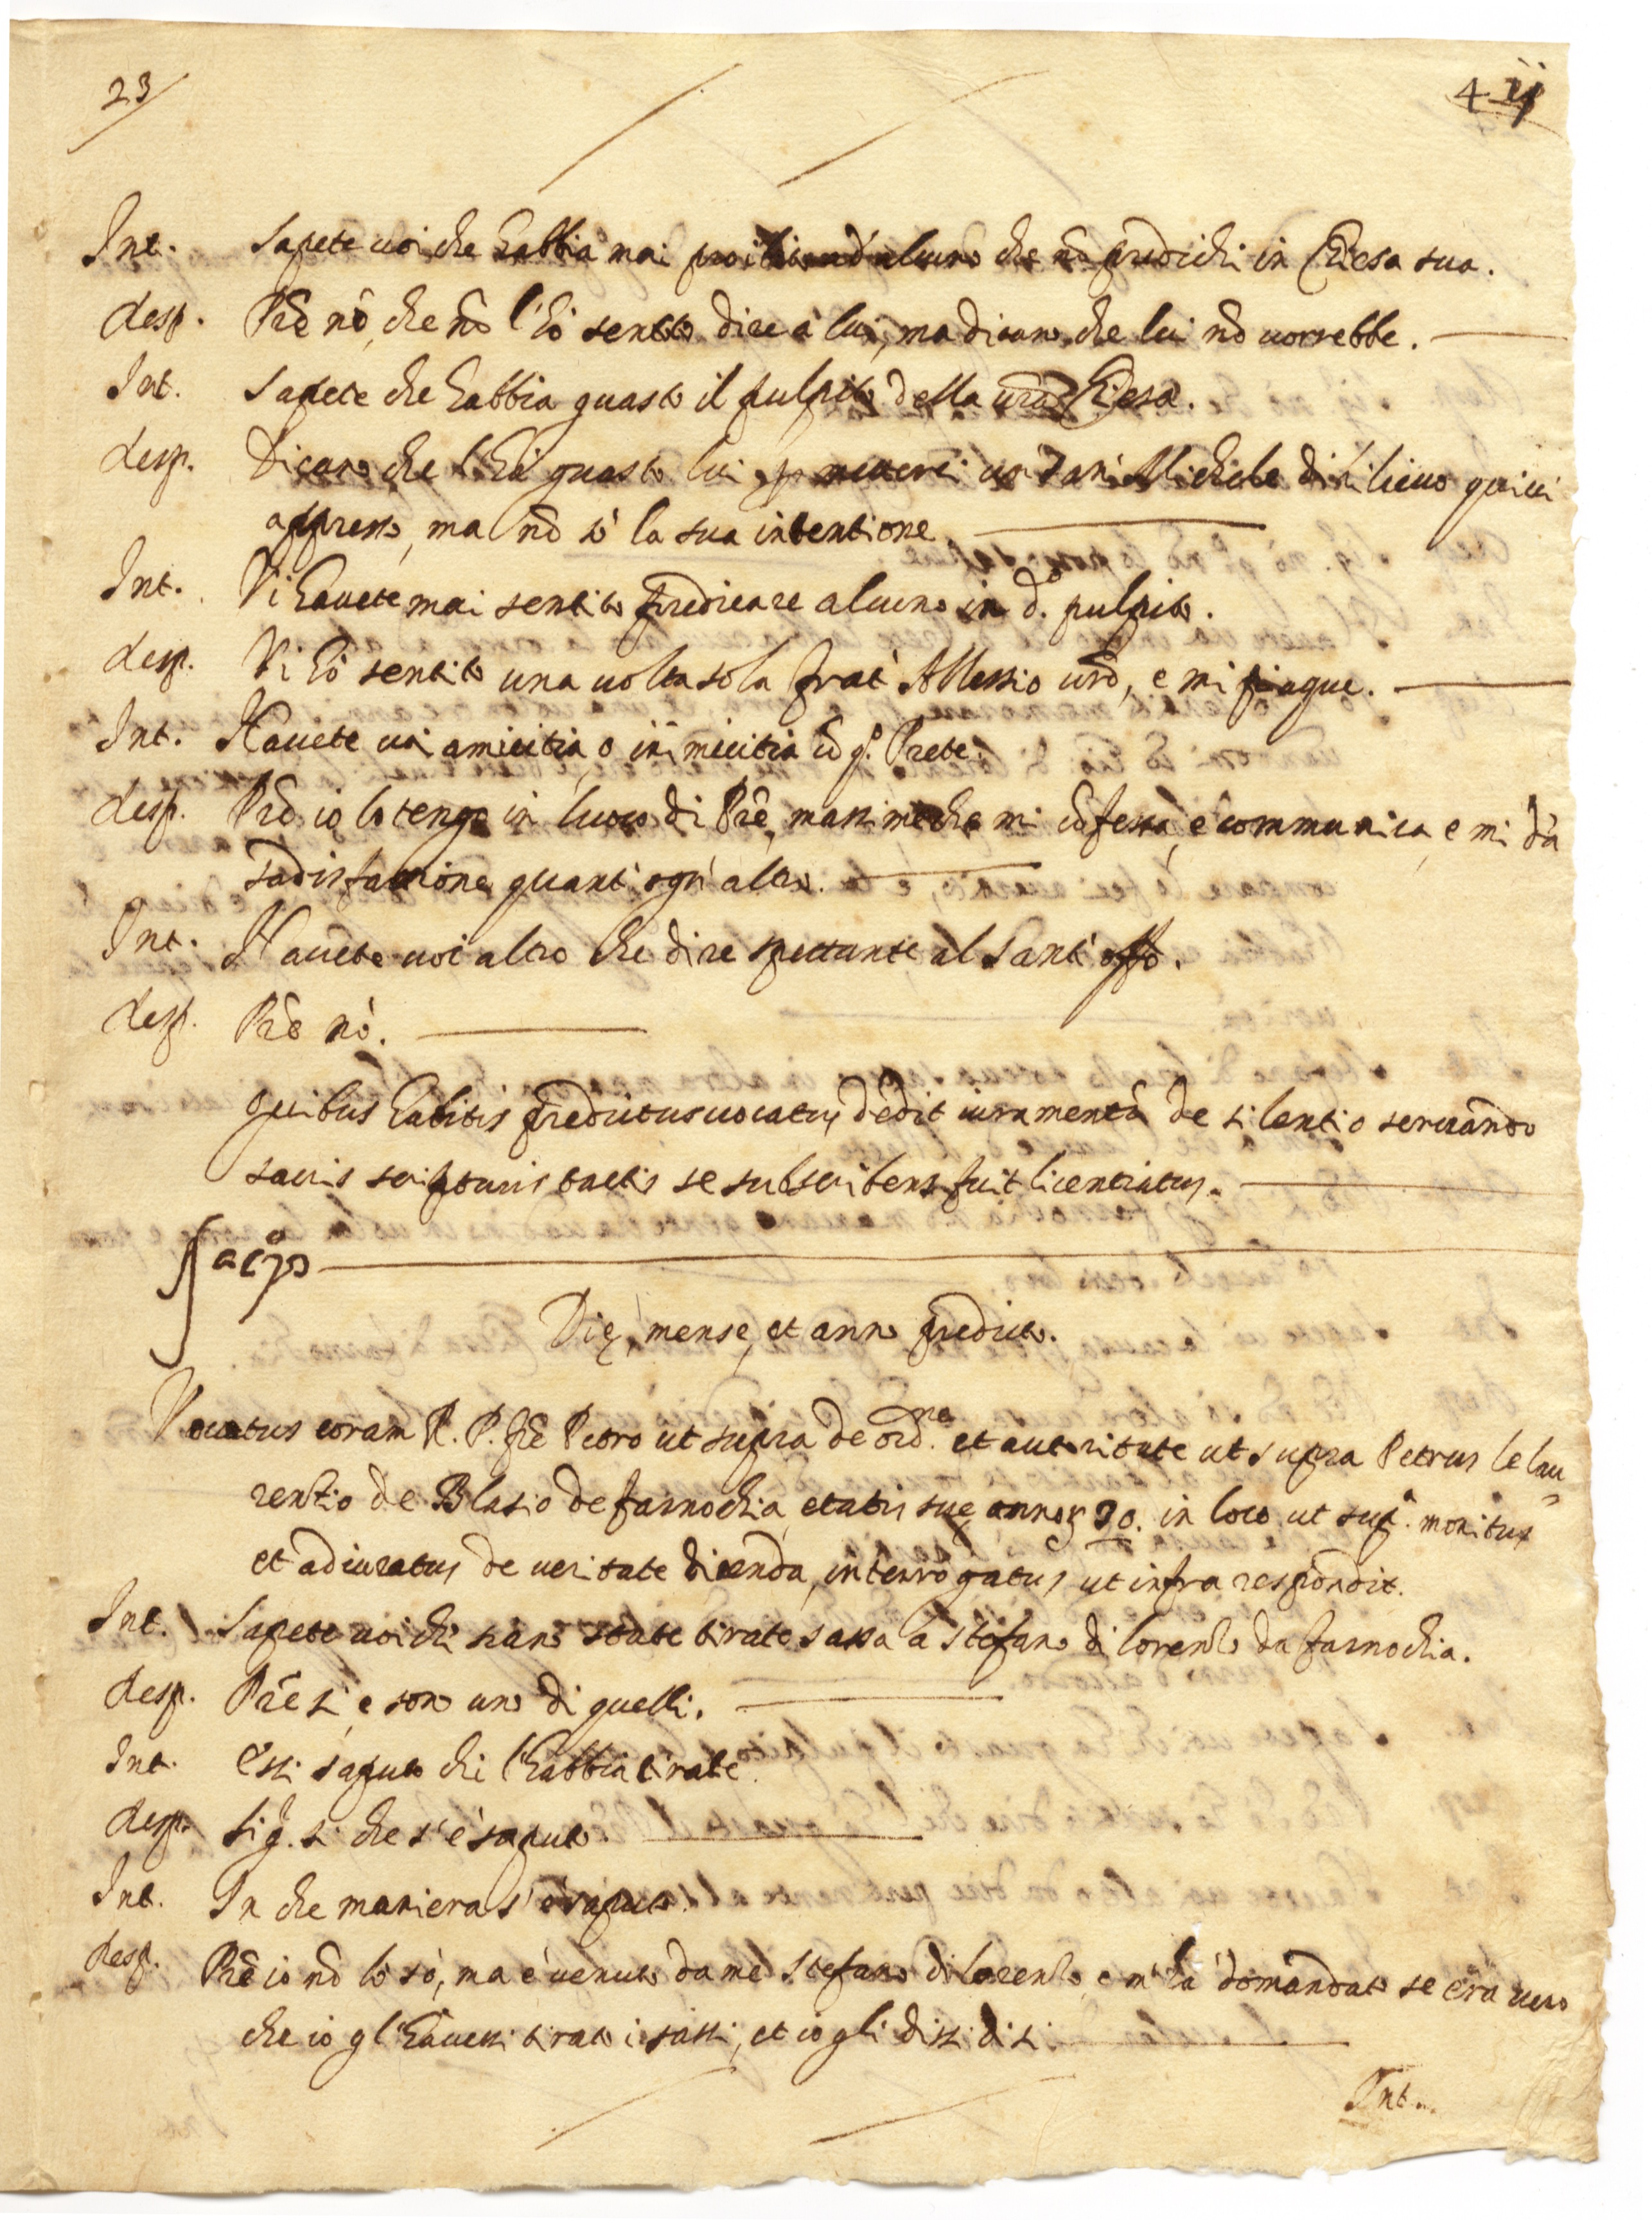 23
4 ij
Int. Sapete uoi che habbia mai proibito ad alcuno che nõ predichi in Chiesa sua.
Resp. Prẽ nò, che nõ l'hò sentito dire à lui, ma dicono che lui nõ uorrebbe.
Int. Sapete che habbia guasto il pulpito della urã Chiesa.
Resp. Dicono che l'hà guasto lui p metterci un San Michele di rilieuo quiui
appresso, ma nõ sò la sua intentione.
Int. Vi hauete mai sentito predicare alcuno in d.º pulpito.
Resp. Vi hò sentito una uolta sola frat' Alessio urõ, e mi piaque.
Int. Hauete uoi amicitia, o inimicitia cõ q.º Prete.
Resp. Prẽ io lo tengo in luoco di Prẽ, massime che mi cõfessa, e communica, e mi dà
sadisfattione quant' ogn' altro.
Int. Hauete uoi altro che dire spettante al Sant' offo.
Resp. Prẽ nò.
Quibus habitis predictus uocatus dedit iuramentũ de silentio seruando
sacris scripturis tactis se subscribens fuit licentiatus.
Die, mense, et anno predicto.
Vocatus coram R. P. frẽ Petro ut supra de ord.ne et autoritate ut supra Petrus le lau
rentio de Blasio de farnochia etatis sue annor 70. in loco ut sup.ª monitus
et adiuratus de ueritate dicenda, interrogatus ut infra respondit.
Int. Sapete uoi chi siano state tirate sassa à Stefano di lorenzo da farnochia.
Resp. Prẽ si, e sono uno di quelli.
Int. Essi saputo chi l'habbia tirate.
Resp. Sig. si che s'è saputo.
Int. In che maniera s'è saputo.
Resp. Prẽ io nõ lo sò, ma è uenuto da me Stefano di lorenzo, e m'hà domandato se era uero
che io gl'hauessi tirato i sassi, et io gli dissi di si.
Int.